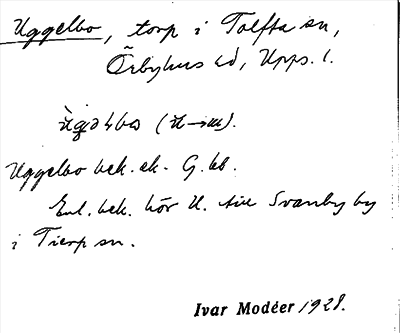 Uggelbo, torp i Tolfta sn,
Örbyhus hd, Upps. l.
Uggelbo bek. ek. G. bl.
Enl. bek. hör U. till Svanby by
i Tierp sn.
Ivar Modéer 1928.